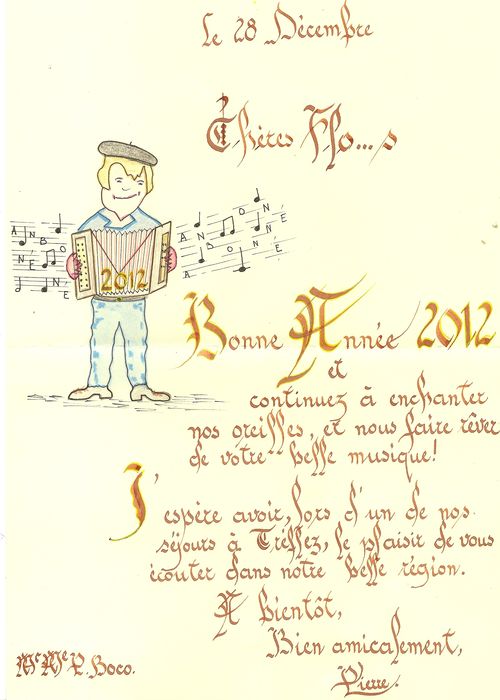 Le 28 Décembre
Chères Flo...s
2012
Bonne Année 2012
et
continuez à enchanter
nos oreilles, et nous faire rêver
de votre belle musique!
J'espère avoir, lors d'un de nos
séjours à Tréflez, le plaisir de vous
écouter dans notre belle région.
A bientôt,
Bien amicalement,
Pierre.
Mr Me P. Boco.